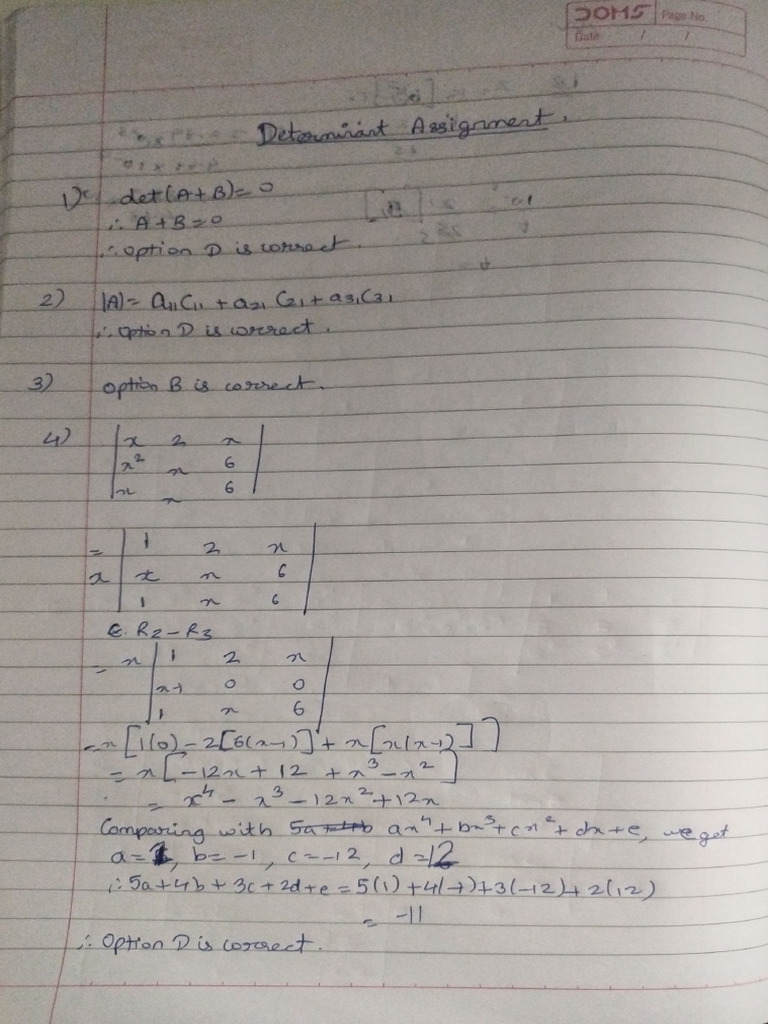 DOMS Page No.
Date / /
Determinant Assignment.
1) det(A+B)=0
∴ A+B=0
∴ option D is correct.
2) |A|= a11C11 + a21 C21 + a31C31
∴ option D is correct.
3) option B is correct.
4) | x 2 x |
| x² x 6 |
| x x 6 |
= | 1 2 x |
x | x x 6 |
| 1 x 6 |
R2-R3
= x | 1 2 x |
| x-1 0 0 |
| 1 x 6 |
= x [1(0) - 2[6(x-1)] + x[x(x-1)]]
= x [-12x + 12 + x³ - x²]
= x⁴ - x³ - 12x² + 12x
Comparing with ax⁴ + bx³ + cx² + dx + e, we get
a=1, b=-1, c=-12, d=12
∴ 5a+4b + 3c + 2d + e = 5(1) + 4(-1) + 3(-12) + 2(12)
= -11
∴ Option D is correct.